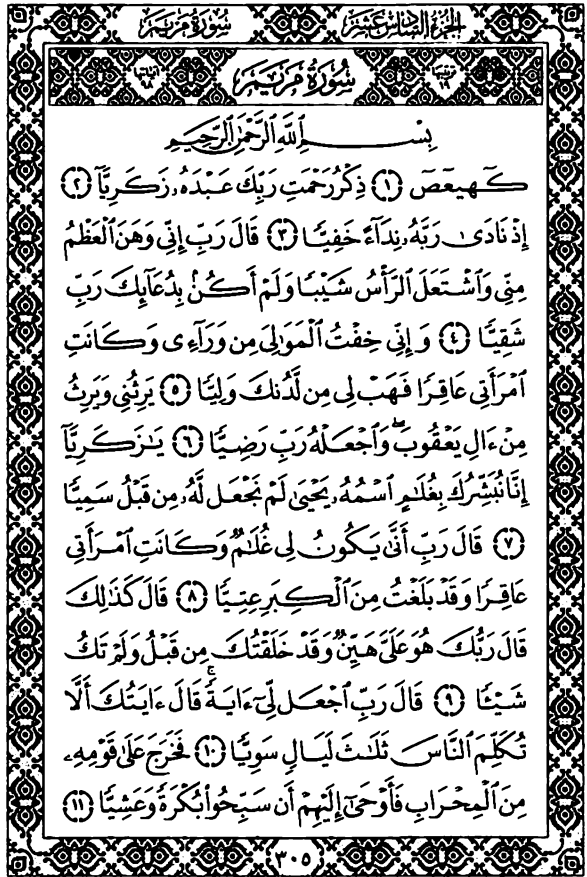 الجزء السادس عشر
سورة مريم
ترتيبها ١٩
سورة مريم
آياتها ٩٨
بِسْمِ ٱللَّهِ ٱلرَّحْمَٰنِ ٱلرَّحِيمِ
كٓهيعٓصٓ ﴿١﴾ ذِكْرُ رَحْمَتِ رَبِّكَ عَبْدَهُۥ زَكَرِيَّآ ﴿٢﴾
إِذْ نَادَىٰ رَبَّهُۥ نِدَآءً خَفِيًّا ﴿٣﴾ قَالَ رَبِّ إِنِّى وَهَنَ ٱلْعَظْمُ
مِنِّى وَٱشْتَعَلَ ٱلرَّأْسُ شَيْبًا وَلَمْ أَكُنۢ بِدُعَآئِكَ رَبِّ
شَقِيًّا ﴿٤﴾ وَإِنِّى خِفْتُ ٱلْمَوَٰلِىَ مِن وَرَآءِى وَكَانَتِ
ٱمْرَأَتِى عَاقِرًا فَهَبْ لِى مِن لَّدُنكَ وَلِيًّا ﴿٥﴾ يَرِثُنِى وَيَرِثُ
مِنْ ءَالِ يَعْقُوبَ ۖ وَٱجْعَلْهُ رَبِّ رَضِيًّا ﴿٦﴾ يَٰزَكَرِيَّآ
إِنَّا نُبَشِّرُكَ بِغُلَٰمٍ ٱسْمُهُۥ يَحْيَىٰ لَمْ نَجْعَل لَّهُۥ مِن قَبْلُ سَمِيًّا
﴿٧﴾ قَالَ رَبِّ أَنَّىٰ يَكُونُ لِى غُلَٰمٌ وَكَانَتِ ٱمْرَأَتِى
عَاقِرًا وَقَدْ بَلَغْتُ مِنَ ٱلْكِبَرِ عِتِيًّا ﴿٨﴾ قَالَ كَذَٰلِكَ
قَالَ رَبُّكَ هُوَ عَلَىَّ هَيِّنٌ وَقَدْ خَلَقْتُكَ مِن قَبْلُ وَلَمْ تَكُ
شَيْـًٔا ﴿٩﴾ قَالَ رَبِّ ٱجْعَل لِّىٓ ءَايَةً ۚ قَالَ ءَايَتُكَ أَلَّا
تُكَلِّمَ ٱلنَّاسَ ثَلَٰثَ لَيَالٍ سَوِيًّا ﴿١٠﴾ فَخَرَجَ عَلَىٰ قَوْمِهِۦ
مِنَ ٱلْمِحْرَابِ فَأَوْحَىٰٓ إِلَيْهِمْ أَن سَبِّحُوا۟ بُكْرَةً وَعَشِيًّا ﴿١١﴾
٣٠٥